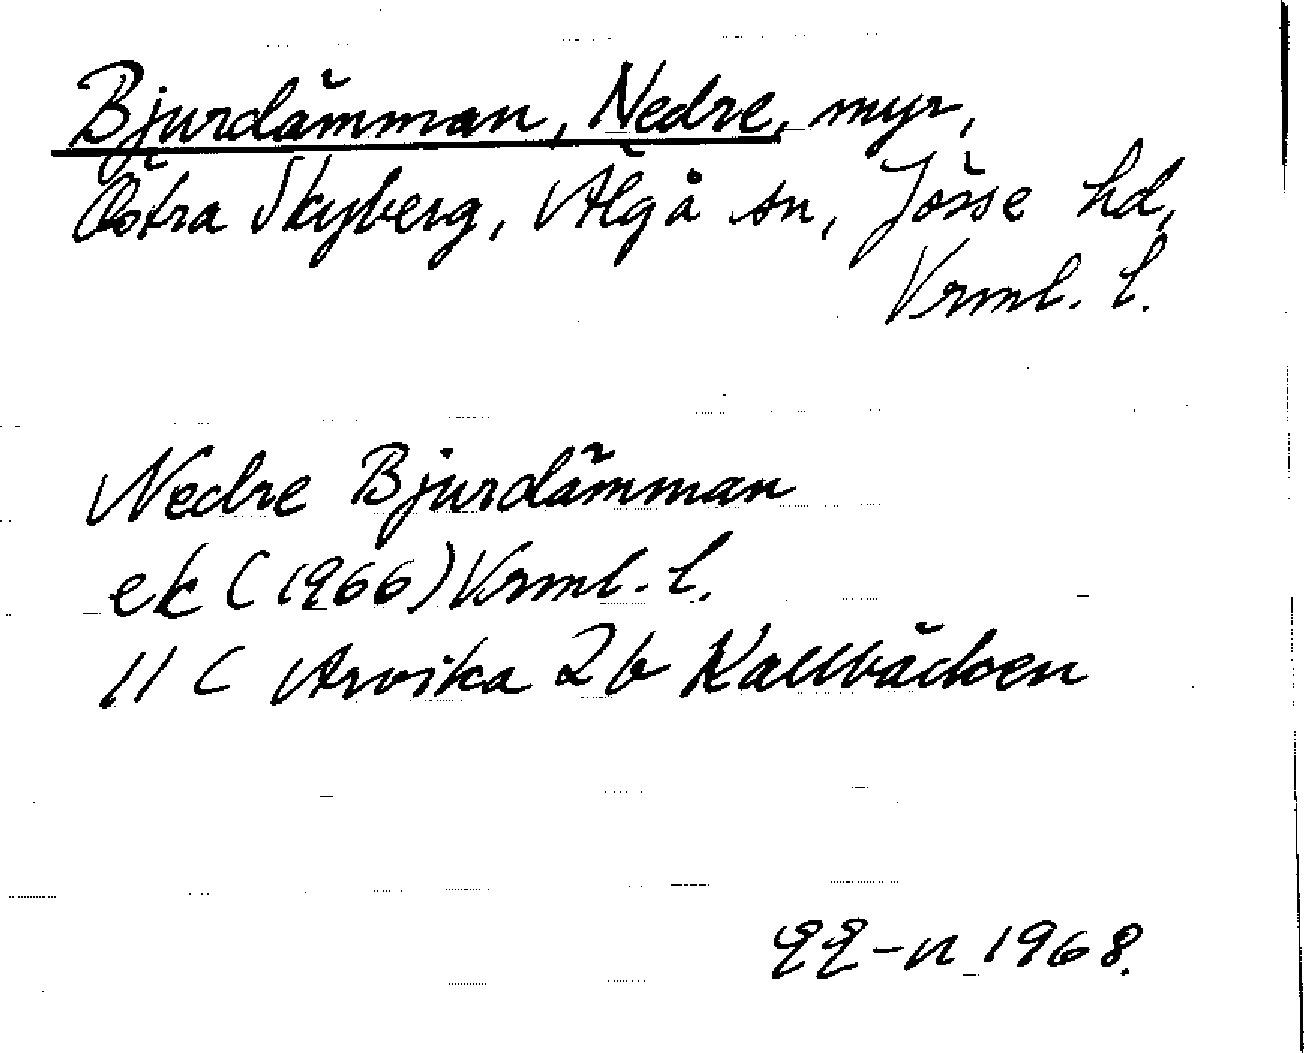 Bjurdämman, Nedre, myr,
Östra Skyberg, Älgå sn, Jösse hd,
Vrml. l.
Nedre Bjurdämman
ek (1966) Vrml. l.
11 C Arvika 2b Kallbäcken
1968.